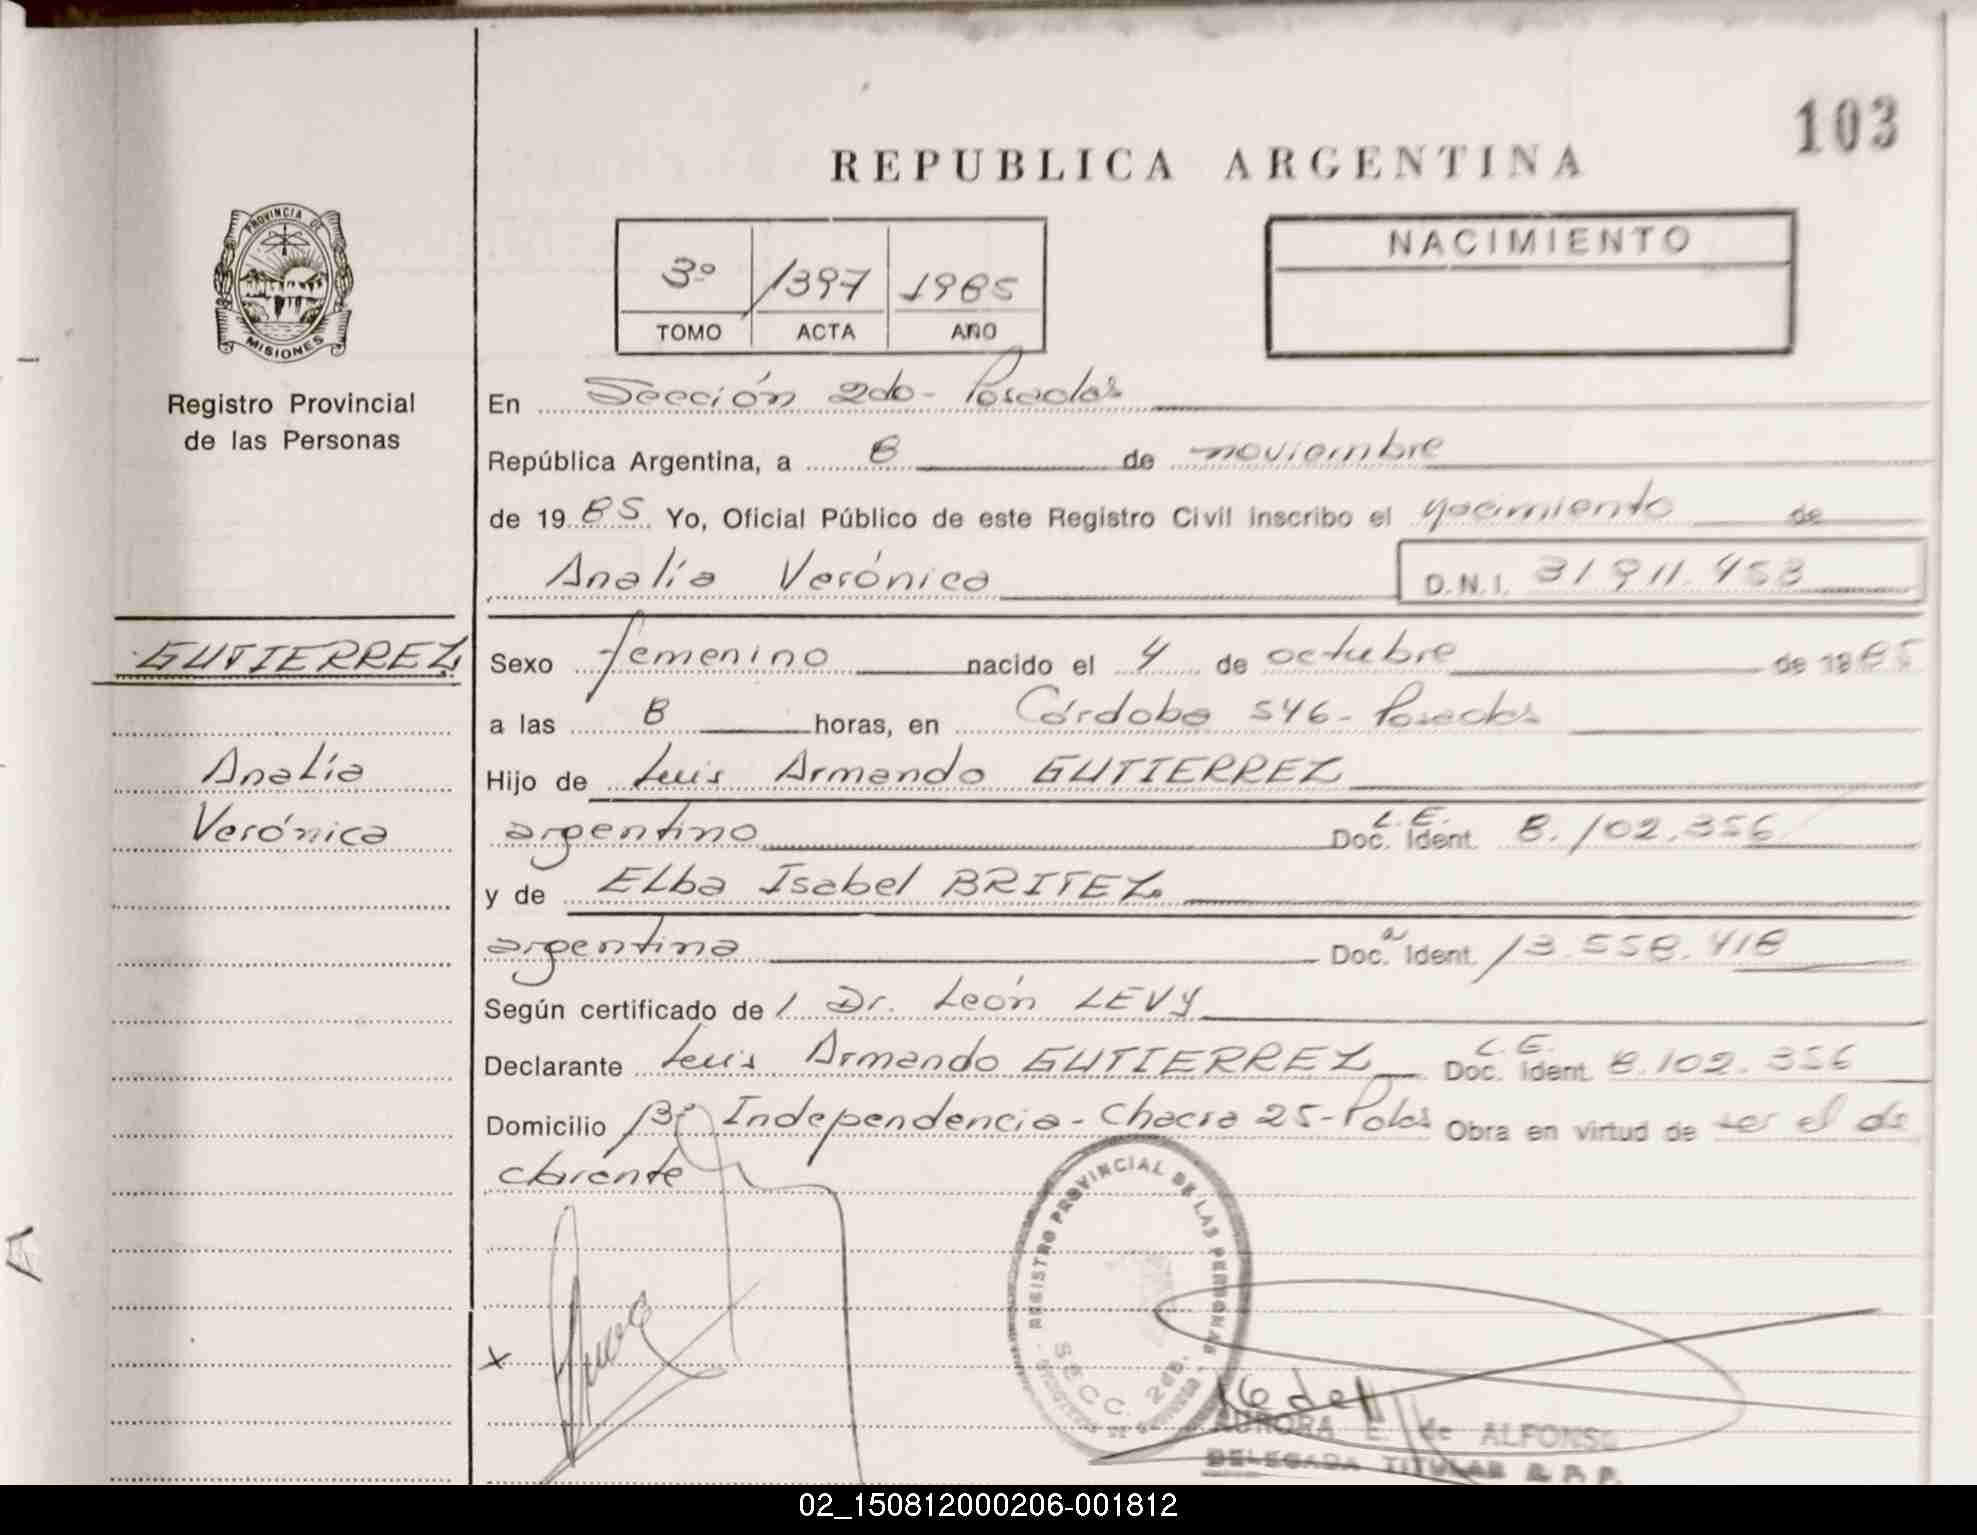 103
REPUBLICA ARGENTINA
PROVINCIA DE
MISIONES
Registro Provincial
de las Personas
3º 1397 1985
TOMO ACTA AÑO
NACIMIENTO
En Sección 2do - Posadas
República Argentina, a 8 de noviembre
de 19 85 Yo, Oficial Público de este Registro Civil inscribo el nacimiento de
Analía Verónica D.N.I. 31 911.453
GUTIERREZ
Analía
Verónica
Sexo femenino nacido el 4 de octubre de 1985
a las 8 horas, en Córdoba 546 - Posadas
Hijo de Luis Armando GUTIERREZ
argentino L.E. Doc. Ident. 8.102.356
y de Elba Isabel BRITEZ
argentina Doc. Ident. 13.558.418
Según certificado de l Dr. León LEVY
Declarante Luis Armando GUTIERREZ L.E. Doc. Ident. 8.102.356
Domicilio Bº Independencia - Chacra 25 - Pdas Obra en virtud de ser el de
clarante
REGISTRO PROVINCIAL DE LAS PERSONAS
SECC. 2da.
x
A
AURORA E. de ALFONSO
DELEGADA TITULAR R.P.P.
02_150812000206-001812